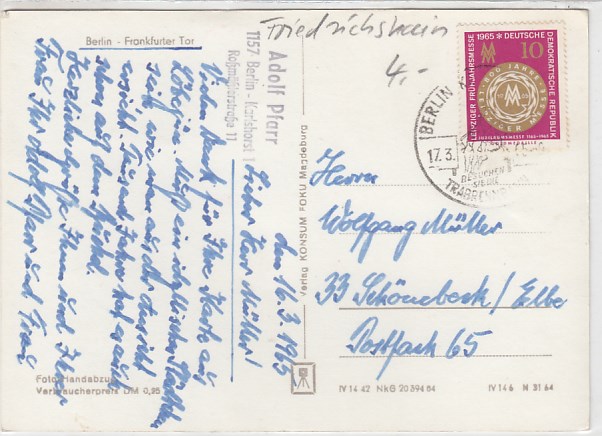 Berlin - Frankfurter Tor
Friedrichshain
4.-
Adolf Pfarr
1157 Berlin - Karlshorst 1
Roßmäßlerstraße 11
den 16.3.1965
Lieber Herr Müller!
Vielen Dank für Ihre Karte aus
Kloster
muß ein idyllisches
sein, wie man aus der Ansicht
ersieht.
Jahren hat auch
schon auf dem
Herzliche Grüße Ihnen und Ihrer
Frau Ihr Adolf Pfarr und Frau
Foto-Handabzug
Verbraucherpreis DM 0,95
Verlag KONSUM FOKU Magdeburg
LEIPZIGER FRÜHJAHRSMESSE 1965 * DEUTSCHE DEMOKRATISCHE REPUBLIK
10
800 JAHRE LEIPZIGER MESSE
JUBILÄUMSMESSE 1165-1965
BERLIN
17.3.
BESUCHEN
SIE DIE
Herrn
Wolfgang Müller
33 Schönebeck/Elbe
Postfach 65
IV 14 42 NkG 20 394 64
IV 14 6 N 31 64